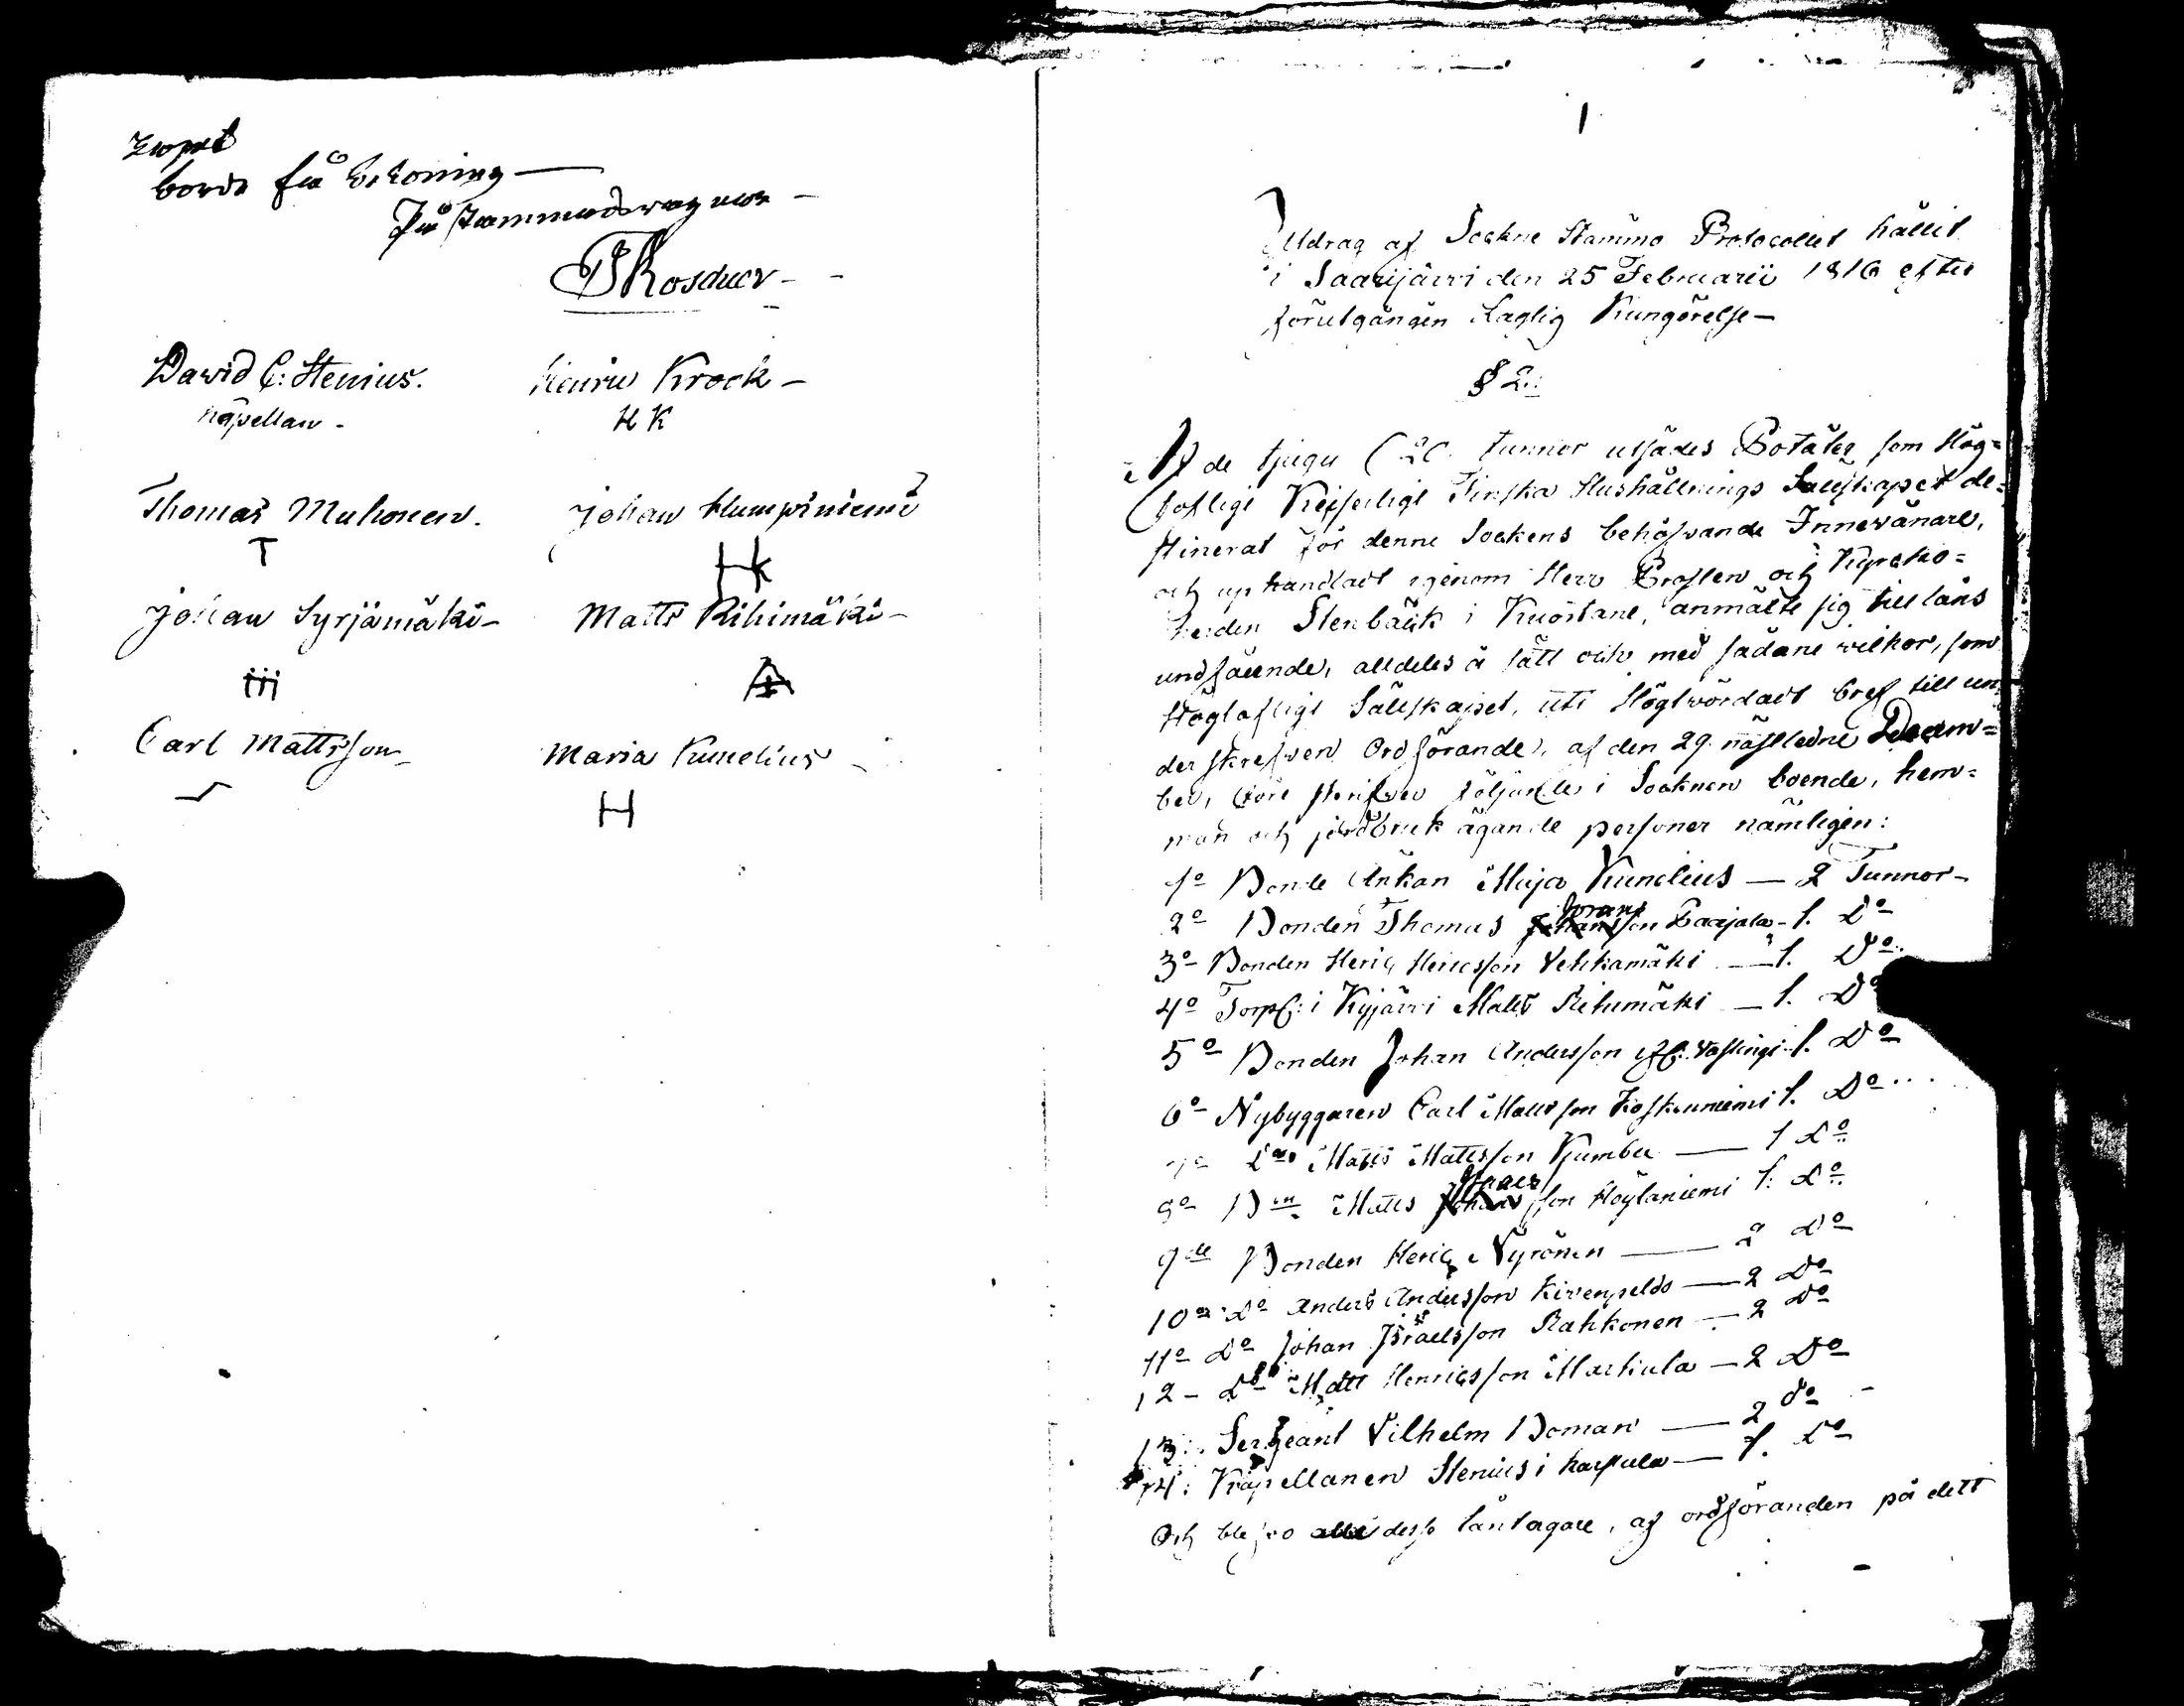 borde få
På Sammandragnes
Roschier
David C: Stenius. Henric Krook
Capellan HK
Thomas Muhonen. Johan Humpiniemi
T HK
Johan Syrjämäki Matts Rihimäki
Carl Mattsson Maria Kunelius
H
1
Utdrag af Sockne Stämmo Protocollet hållit
i Saarijärvi den 25 Februarii 1816 efter
förutgången Laglig Kungörelse
§ 2:
Af de tjugu (20. tunnor utsädes Potäter som Hög=
lofligt Keiserligt Finska Hushållnings Sällskapet de=
stinerat för denne Sockens behöfvande Innevånare,
och uphandladt igenom Herr Prosten och Kyrcko=
herden Stenbäck i Kuortane, anmälte sig till låns
undfående, alldeles å sätt och med sådane vilkor, som
Höglofligt Sällskapet, uti Högtvördadt bref till un
derskrefven Ordförande, af den 29 nästledne Decem=
ber, före skrifver följande i Socknen boende, hem=
man och jordbruk ägande personer nämligen:
1o Bonde Änkan Maja Kunelius — 2 Tunnor
2o Bonden Thomas Görans Johansson Paajala - 1. Do
3o Bonden Henric Henricsson Vehkamäki — 1. Do
4o Torp: i Kyjärvi Matts Rihimäki — 1. Do
5o Bonden Johan Andersson 1. Do
6o Nybyggaren Carl Mattsson Koskenniemi 1. Do
Do Matts Mattsson Kumbu — 1 Do
Matts son Höylaniemi 1: Do
9de Bonden Henric Nyrönen — 2 Do
10o Do Anders Andersson Kivenpelto — 2 Do
11o Do Johan Israelsson Rahkonen — 2 Do
12 - Do Matt Henricsson Markula — 2 Do
13: Sergeant Vilhelm Boman — 2 do
14: Kapellanen Stenius i Karstula — 1. Do
Och blefvo alle desse låntagare, af ordföranden på dett